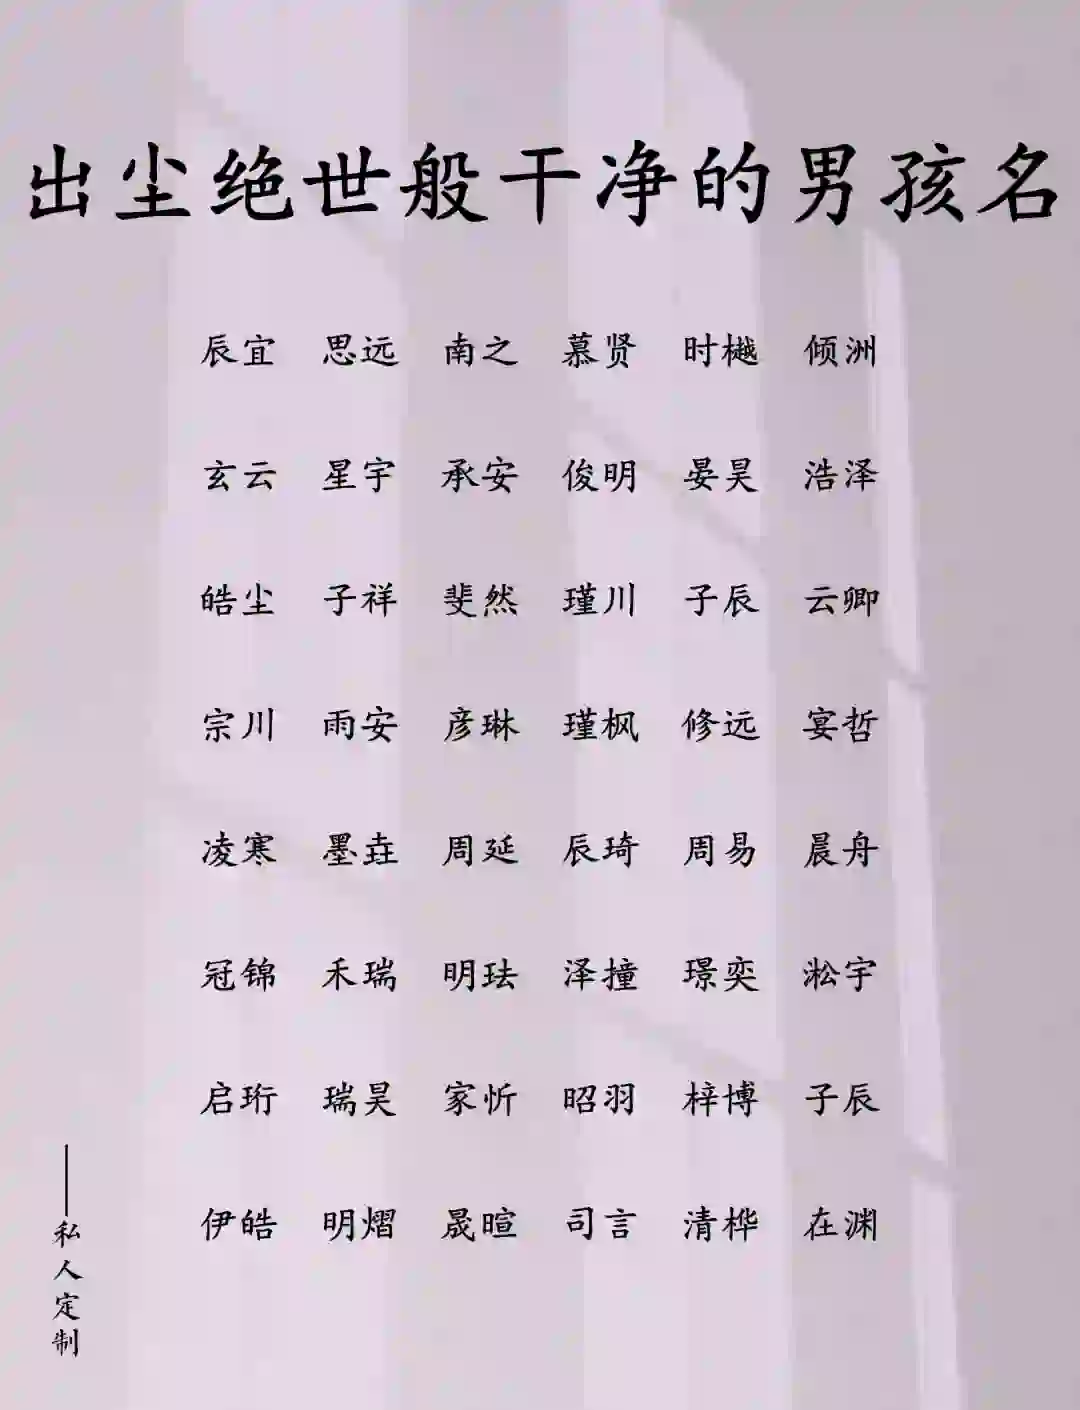 出尘绝世般干净的男孩名
辰宜 思远 南之 慕贤 时樾 倾洲
玄云 星宇 承安 俊明 晏昊 浩泽
皓尘 子祥 斐然 瑾川 子辰 云卿
宗川 雨安 彦琳 瑾枫 修远 宴哲
凌寒 墨垚 周延 辰琦 周易 晨舟
冠锦 禾瑞 明珐 泽撞 璟奕 淞宇
启珩 瑞昊 家忻 昭羽 梓博 子辰
伊皓 明熠 晟暄 司言 清桦 在渊
——私人定制